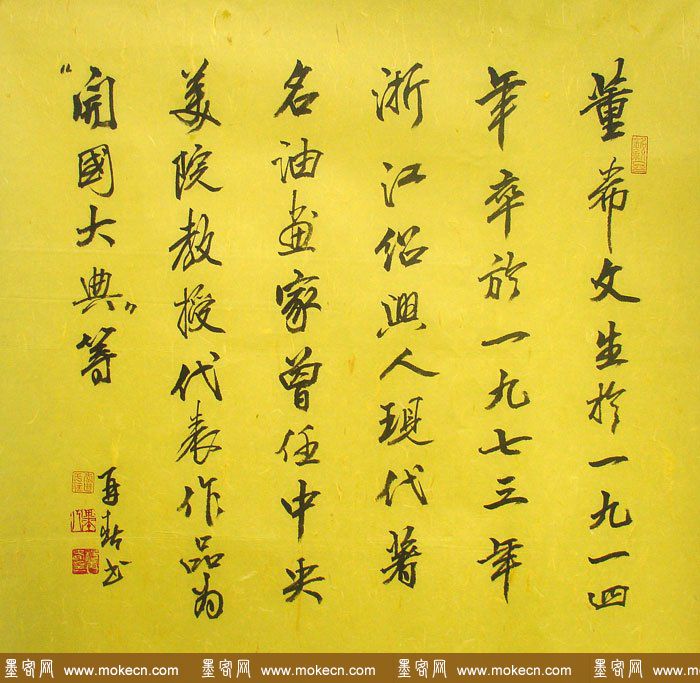 董希文生於一九一四
年卒於一九七三年
浙江绍興人現代著
名油画家曾任中央
美院教授代表作品为
“開國大典”等
再春书
墨客网 www.mokecn.com 墨客网 www.mokecn.com 墨客网 www.mokecn.com 墨客网 www.mokecn.com